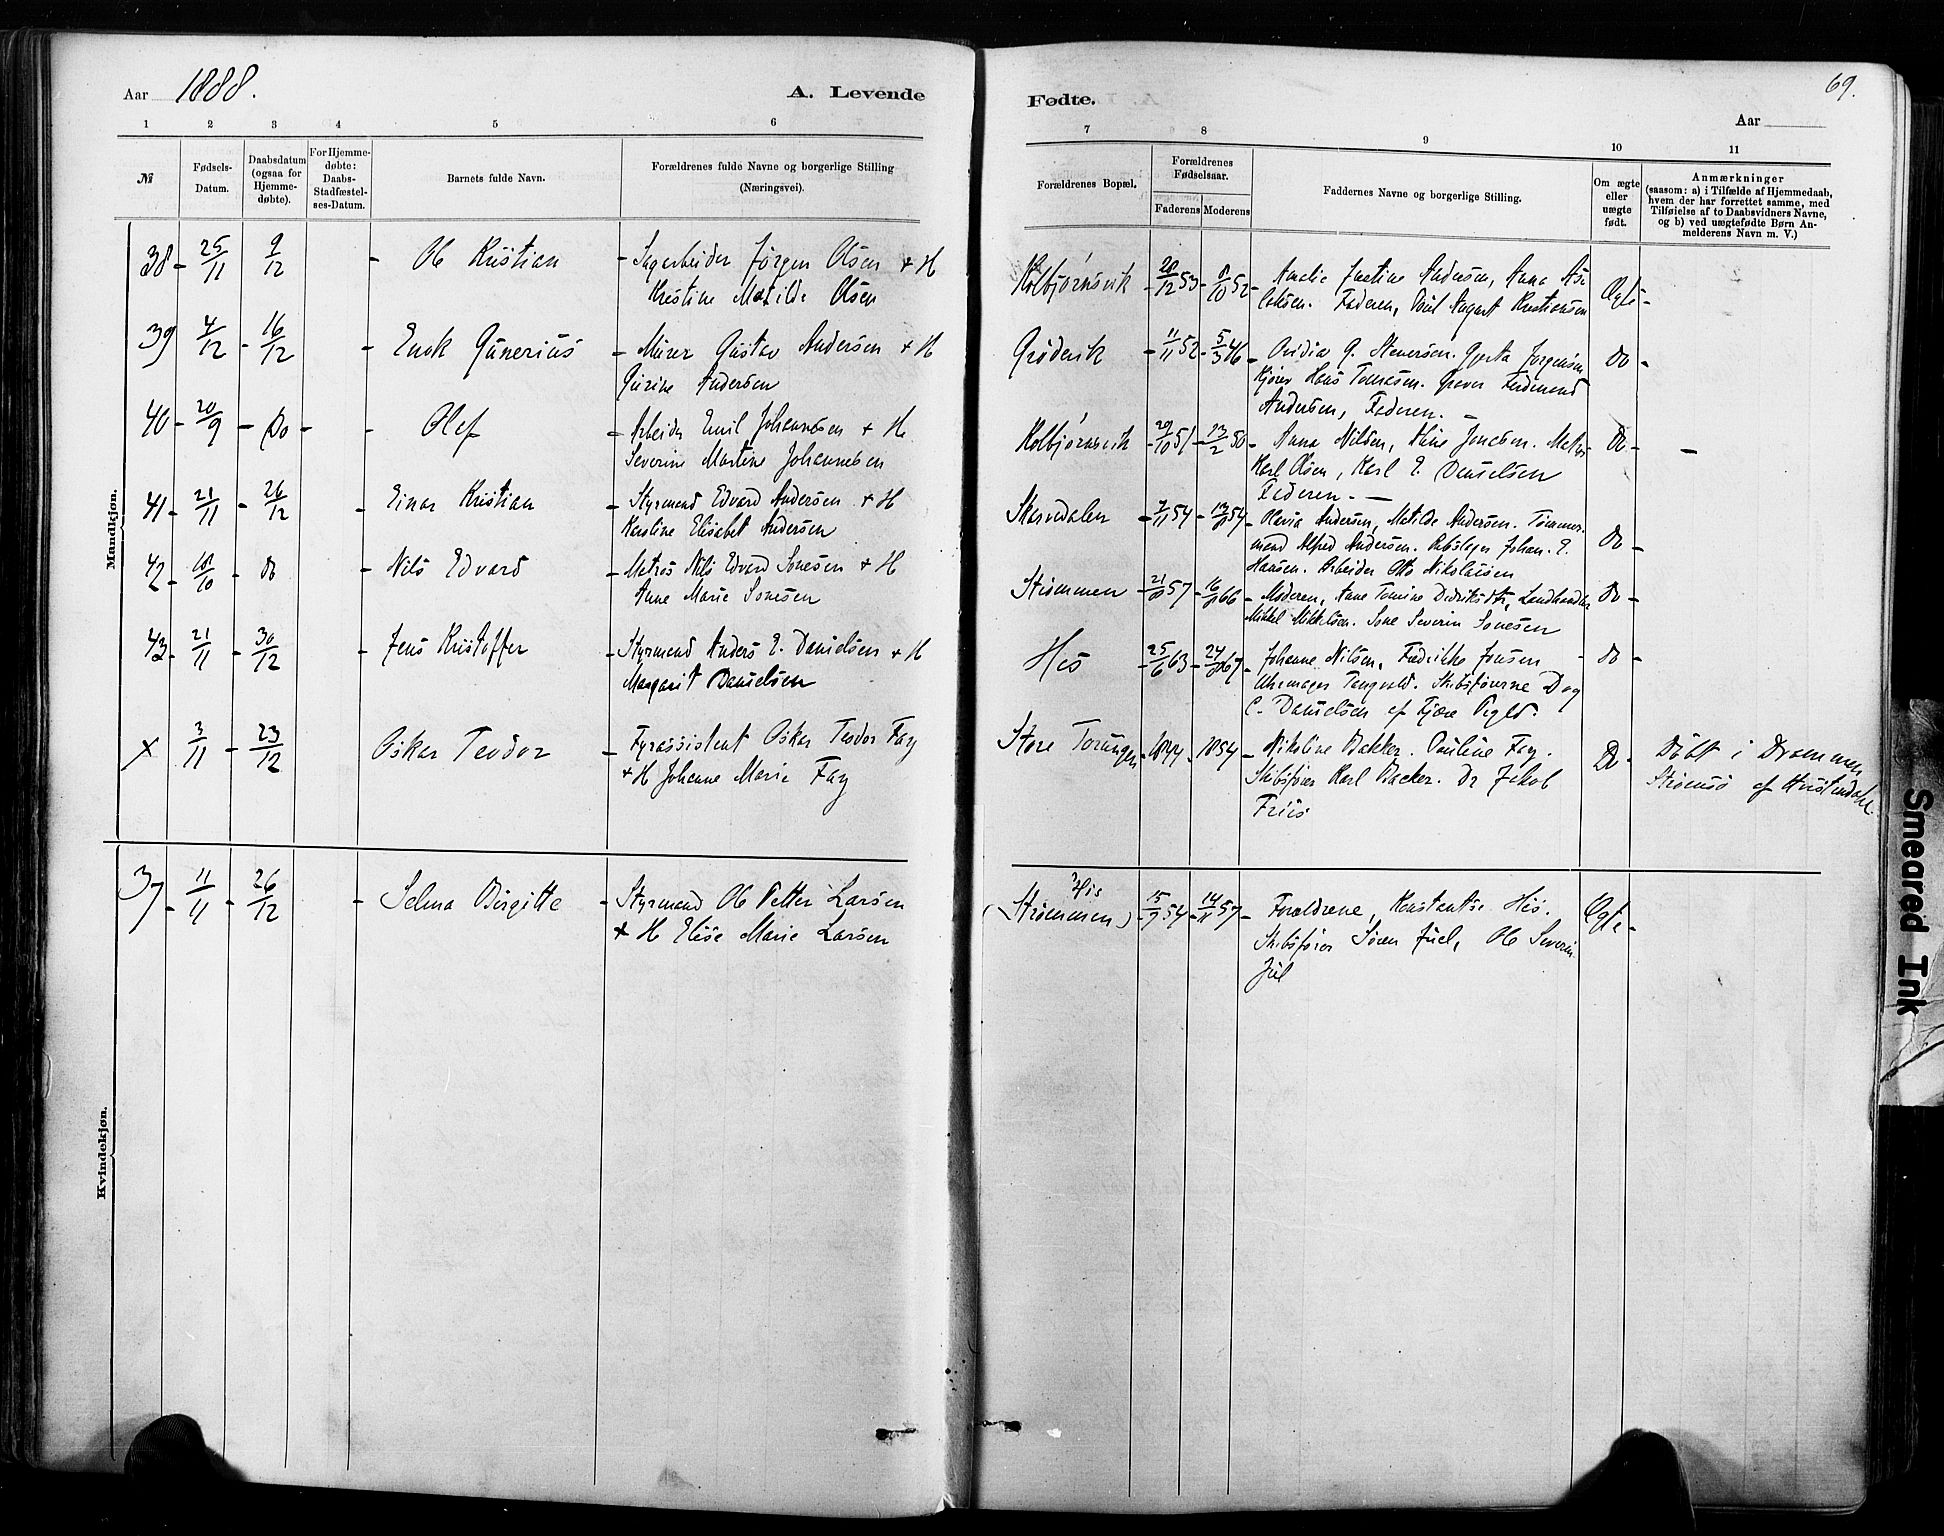 Aar 1888. A. Levende
1 2 3 4 5 6
№ Fødsels-Datum. Daabsdatum (ogsaa for Hjemme-døbte). For Hjemme-døbte: Daabs-Stadfæstel-ses-Datum. Barnets fulde Navn. Forældrenes fulde Navne og borgerlige Stilling (Næringsvei).
Mandkjøn.
38 - 25/11 9/12 - Ole Kristian - Sagarbeider Jørgen Olsen + H
Kristine Matilde Olsen
39 4/12 - 16/12 - Enok Gunerius - Murer Gustav Andersen + H
Gurine Andersen
40 - 20/9 - Do - - Olaf - Arbeider Emil Johannesen + H.
Severine Martine Johannesen
41 - 21/11 - 26/12 - Einar Kristian - Styrmand Edvard Andersen + H
Karoline Elisabet Andersen
42 - 18/10 - do - Nils Edvard - Matros Nils Edvard Sonesen + H
Anne Marie Sonesen
43 - 21/11 - 30/12 - Jens Kristoffer - Styrmand Anders E. Danielsen + H
Margarit Danielsen
x 3/11 - 23/12 Oskar Teodor - Fyrassistent Oskar Teodor Fay
+ H Johanne Marie Fay
Kvindekjøn.
37 - 11/11 - 26/12 - Selma Birgitte - Styrmand Ole Petter Larsen
+ H Elise Marie Larsen
69.
Fødte. Aar
7 8 9 10 11
Forældrenes Bopæl. Forældrenes Fødselsaar. Faderens Moderens Faddernes Navne og borgerlige Stilling. Om ægte eller uægte født. Anmærkninger
(saasom: a) i Tilfælde af Hjemmedaab,
hvem der har forrettet samme, med
Tilføielse af to Daabsvidners Navne,
og b) ved uægtefødte Børn An-
melderens Navn m. V.)
Kolbjørnsvik - 28/12 53 - 8/10 52 - Amalie Justine Andersen, Anna As-
laksen. Faderen, Poul August Kristiansen Ægte -
Grødevik - 11/11 52 - 5/3 46 - Ovidia G. Stenersen. Gjerta Jørgensen
Hans Tomesen. Graver Ferdinand
Andersen, Faderen. - Do -
Kolbjørnsvik - 29/10 51 - 23/2 50 - Anna Nilsen, Aline Jonassen. Matros
Karl Olsen, Karl E. Danielsen
Faderen. - Do - -
Skarvedalen - 7/11 54 - 13/8 54 - Olavia Andersen, Matilde Andersen. Tømmer-
mand Alfred Andersen. Rebslager Johan. E.
Hansen. Arbeider Otto Nikolaisen Do -
Strømmen - 21/8 57 - 16/8 66 - Moderen, Anne Tomine Didriksdtr, Landhandler
Mikkel Mikkelsen. Sone Severin Sonesen Do -
His - 25/6 63 - 24/8 67 - Johanne Nilsen, Fredrikke Jensen
Uhrmager Tangvald. Skibsførerne D og
C. Danielsen af Fjære Prgld. do -
Store Torungen - 1844 - 1854 - Nikoline Bakker. Pauline Fay.
Skibsfører Karl Backer. Do Jakob
Friis Do - Døbt i Drammen
Strømsø af Hvistendahl.
His
(Strømmen) - 15/9 54 - 14/11 57 - Forældrene, Konstantse His.
Skibsfører Søren Juel, Ole Severin
Juel Ægte -
Smeared Ink